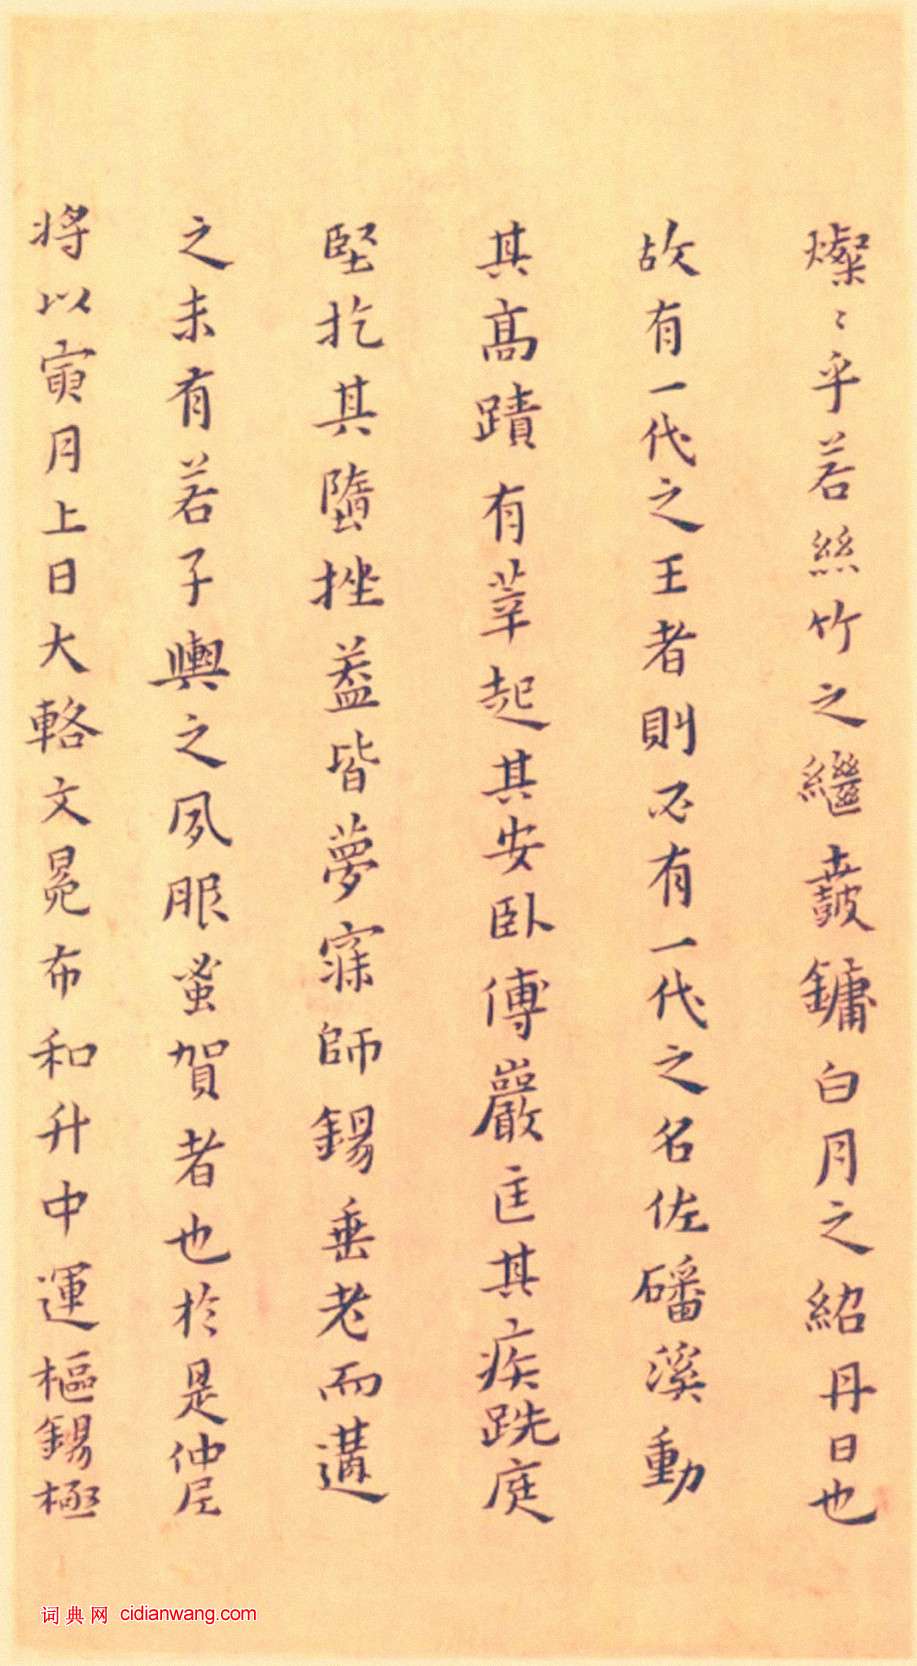 燦〻乎若絲竹之繼鼖鏞白月之紹丹日也
故有一代之王者則必有一代之名佐磻溪動
其高蹟有莘起其安卧傅巖匡其疾跣庭
堅扢其墮挫葢皆夢寐師錫垂老而遘
之未有若子輿之夙服蚤賀者也於是仲尼
將以寅月上日大輅文冕布和升中運樞錫極
词典网 cidianwang.com